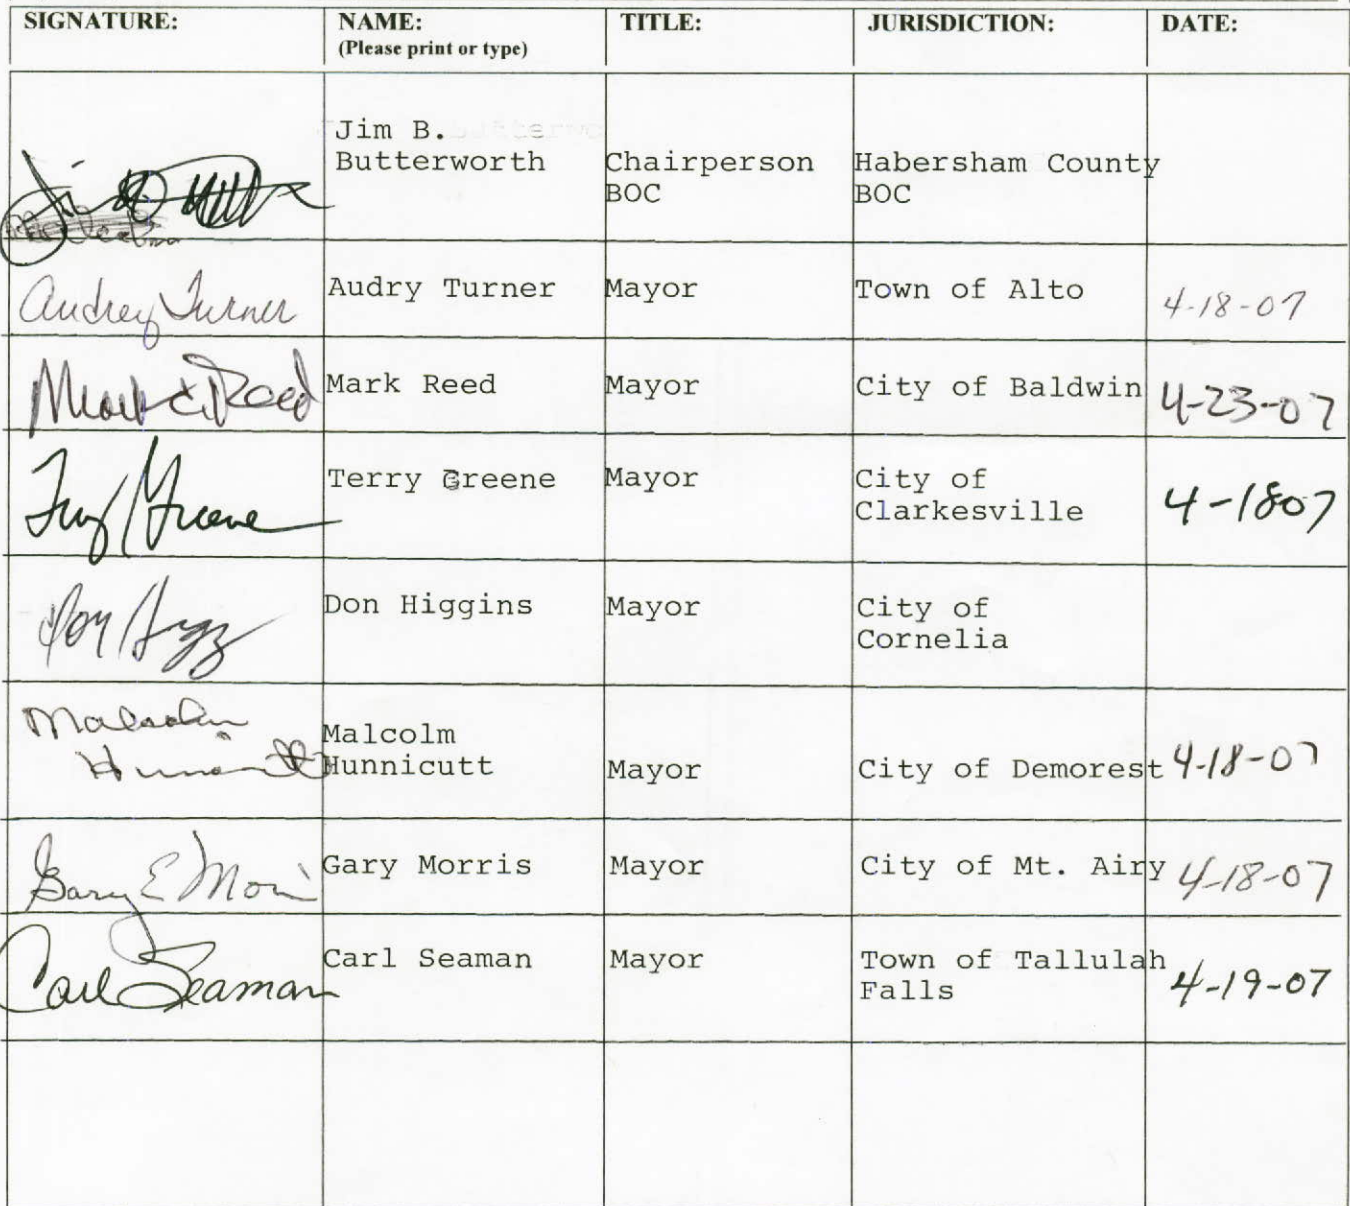 SIGNATURE: NAME: TITLE: JURISDICTION: DATE:
(Please print or type)
Jim B.
Butterworth Chairperson Habersham County
BOC BOC
Audrey Turner Audry Turner Mayor Town of Alto 4-18-07
Mark E. Reed Mark Reed Mayor City of Baldwin 4-23-07
Terry Greene Terry Greene Mayor City of 4-1807
Clarkesville
Don Higgins Mayor City of
Cornelia
Malcolm Malcolm
Hunnicutt Hunnicutt Mayor City of Demorest 4-18-07
Gary E Morris Gary Morris Mayor City of Mt. Airy 4-18-07
Carl Seaman Carl Seaman Mayor Town of Tallulah 4-19-07
Falls